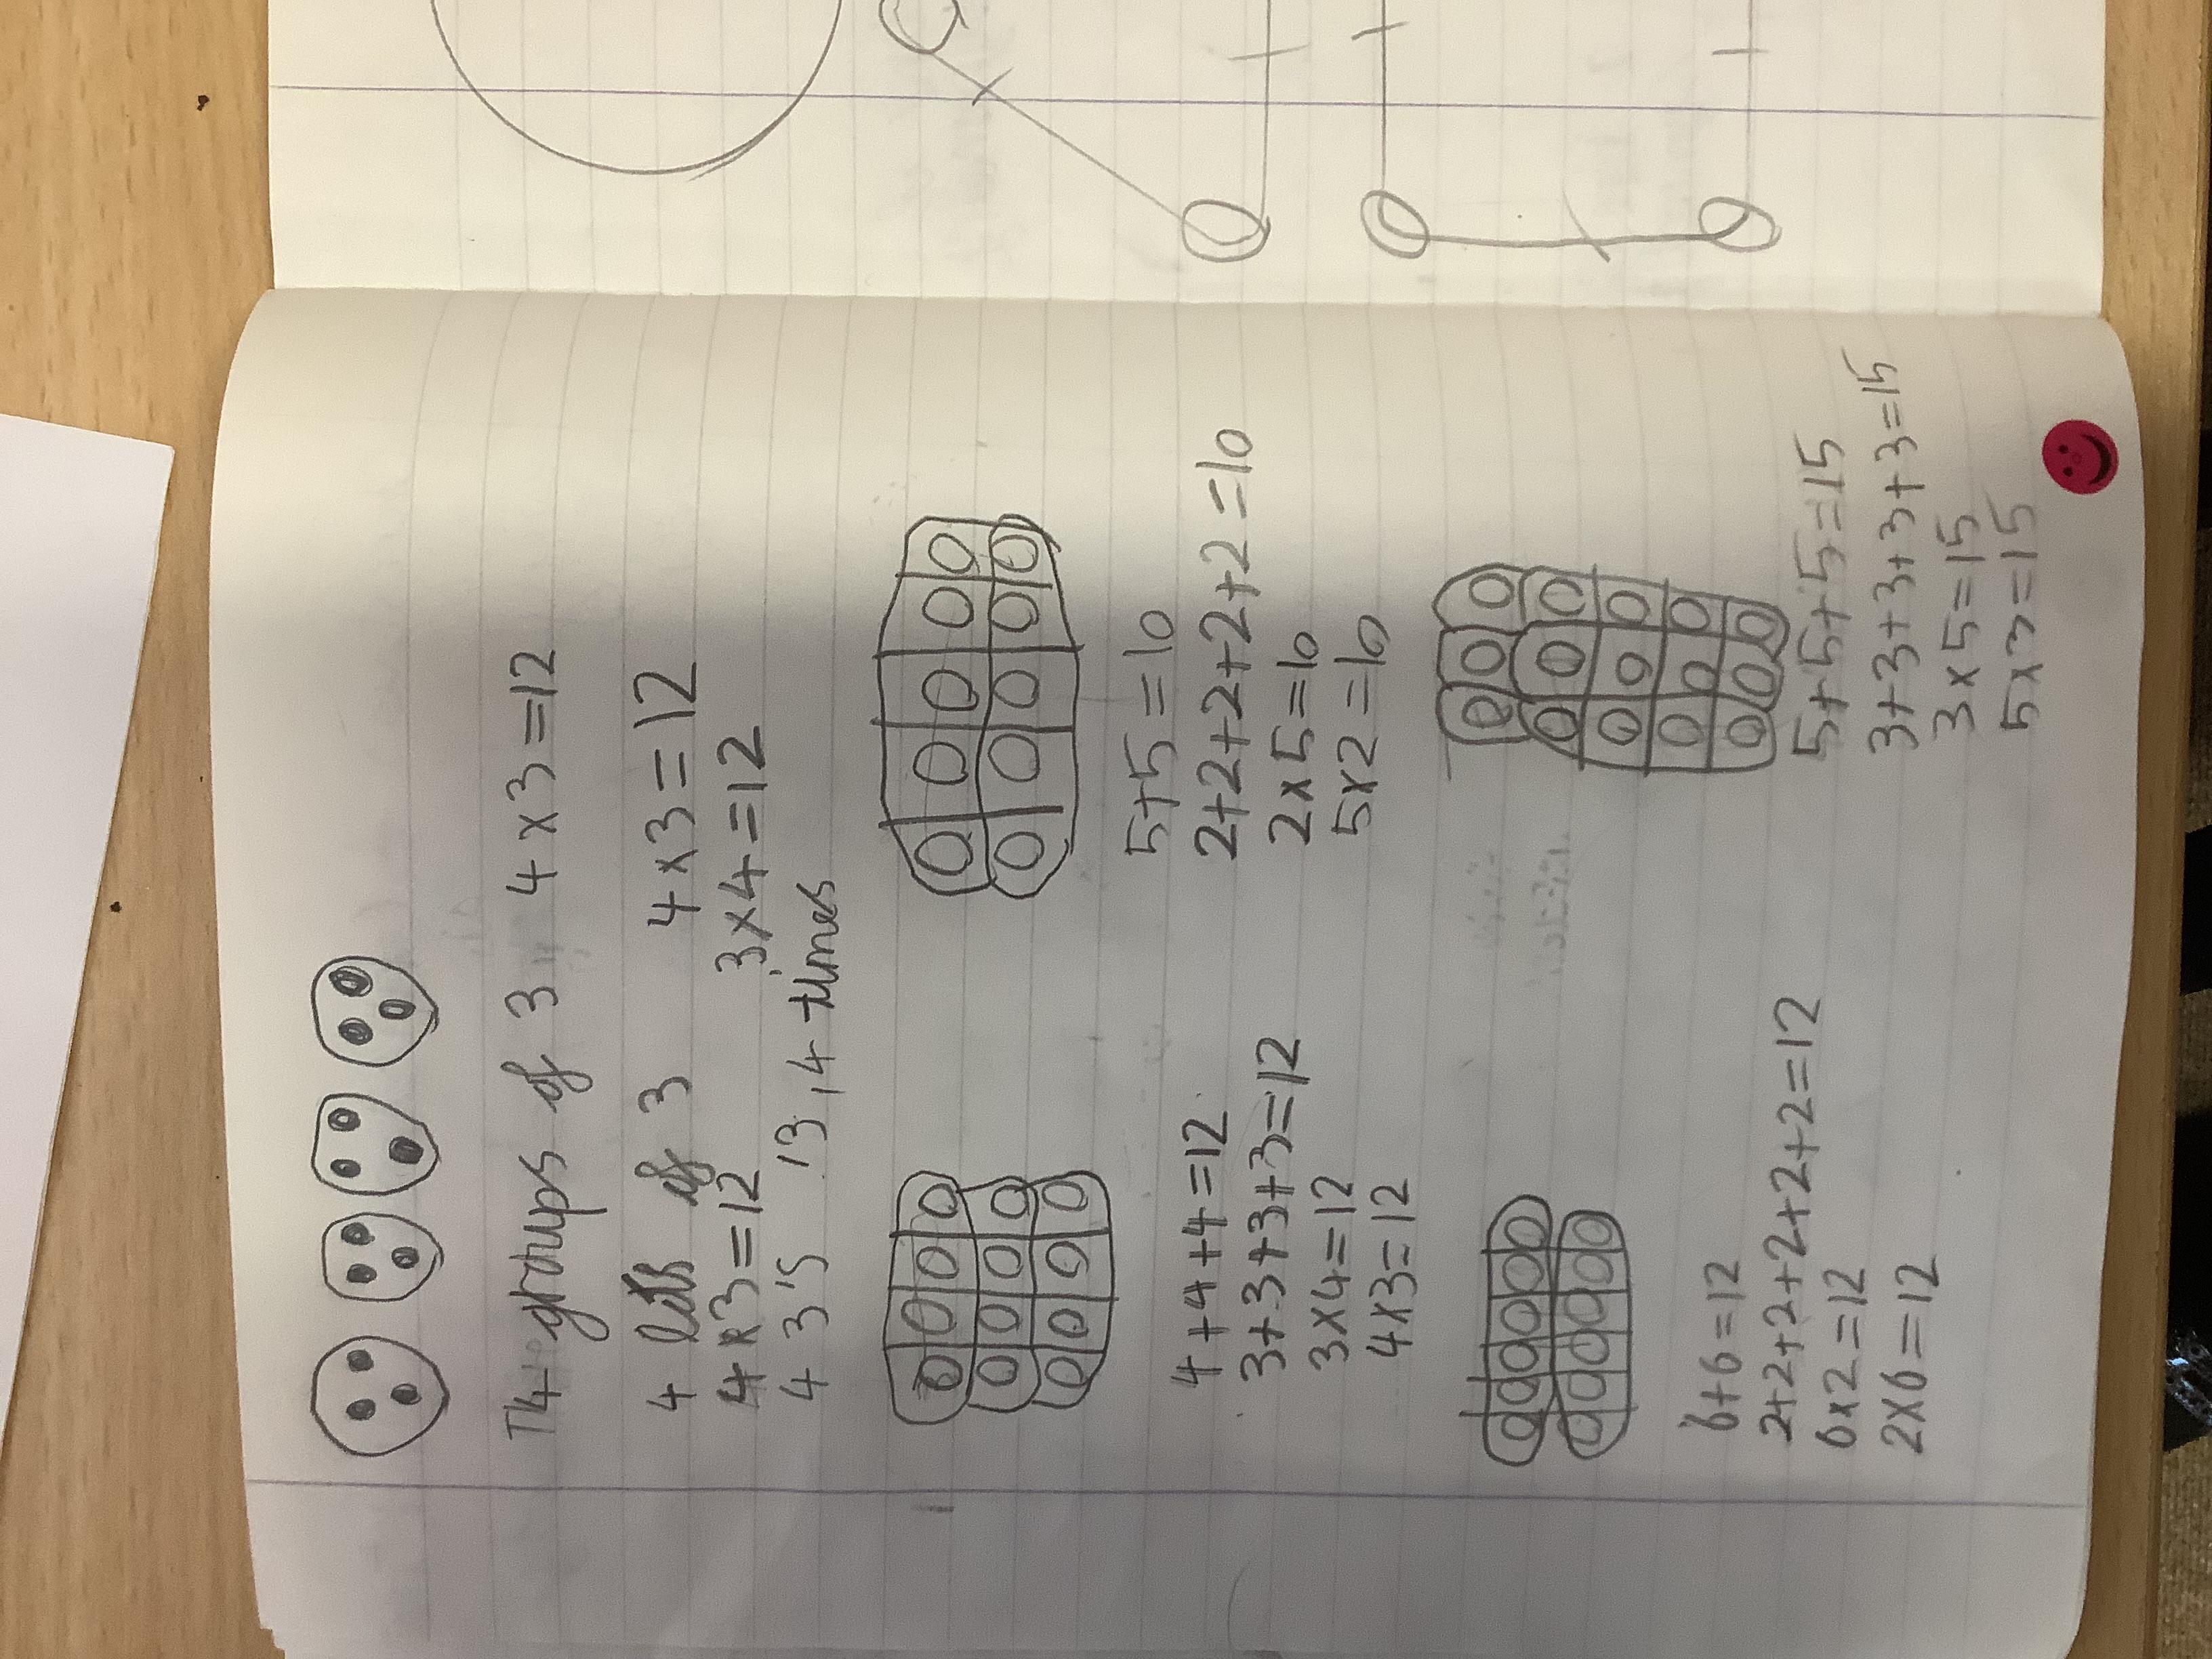 4 groups of 3 4 x 3 = 12
4 lots of 3 4 x 3 = 12
4 x 3 = 12 3 x 4 = 12
4 3's 3, 4 times
4 + 4 + 4 = 12
3 + 3 + 3 + 3 = 12
3 x 4 = 12
4 x 3 = 12
5 + 5 = 10
2 + 2 + 2 + 2 + 2 = 10
2 x 5 = 10
5 x 2 = 10
6 + 6 = 12
2 + 2 + 2 + 2 + 2 + 2 = 12
6 x 2 = 12
2 x 6 = 12
5 + 5 + 5 = 15
3 + 3 + 3 + 3 + 3 = 15
3 x 5 = 15
5 x 3 = 15